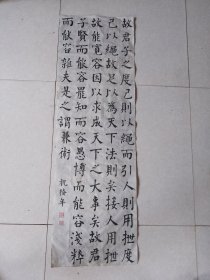 故君子之度己則以繩而引人則用抴度
己以繩故足以為天下法則矣接人用抴
故能寬容因以求成天下之大事矣故君
子賢而能容罷知而能容愚博而能容淺粹
而能容雜夫是之謂兼術